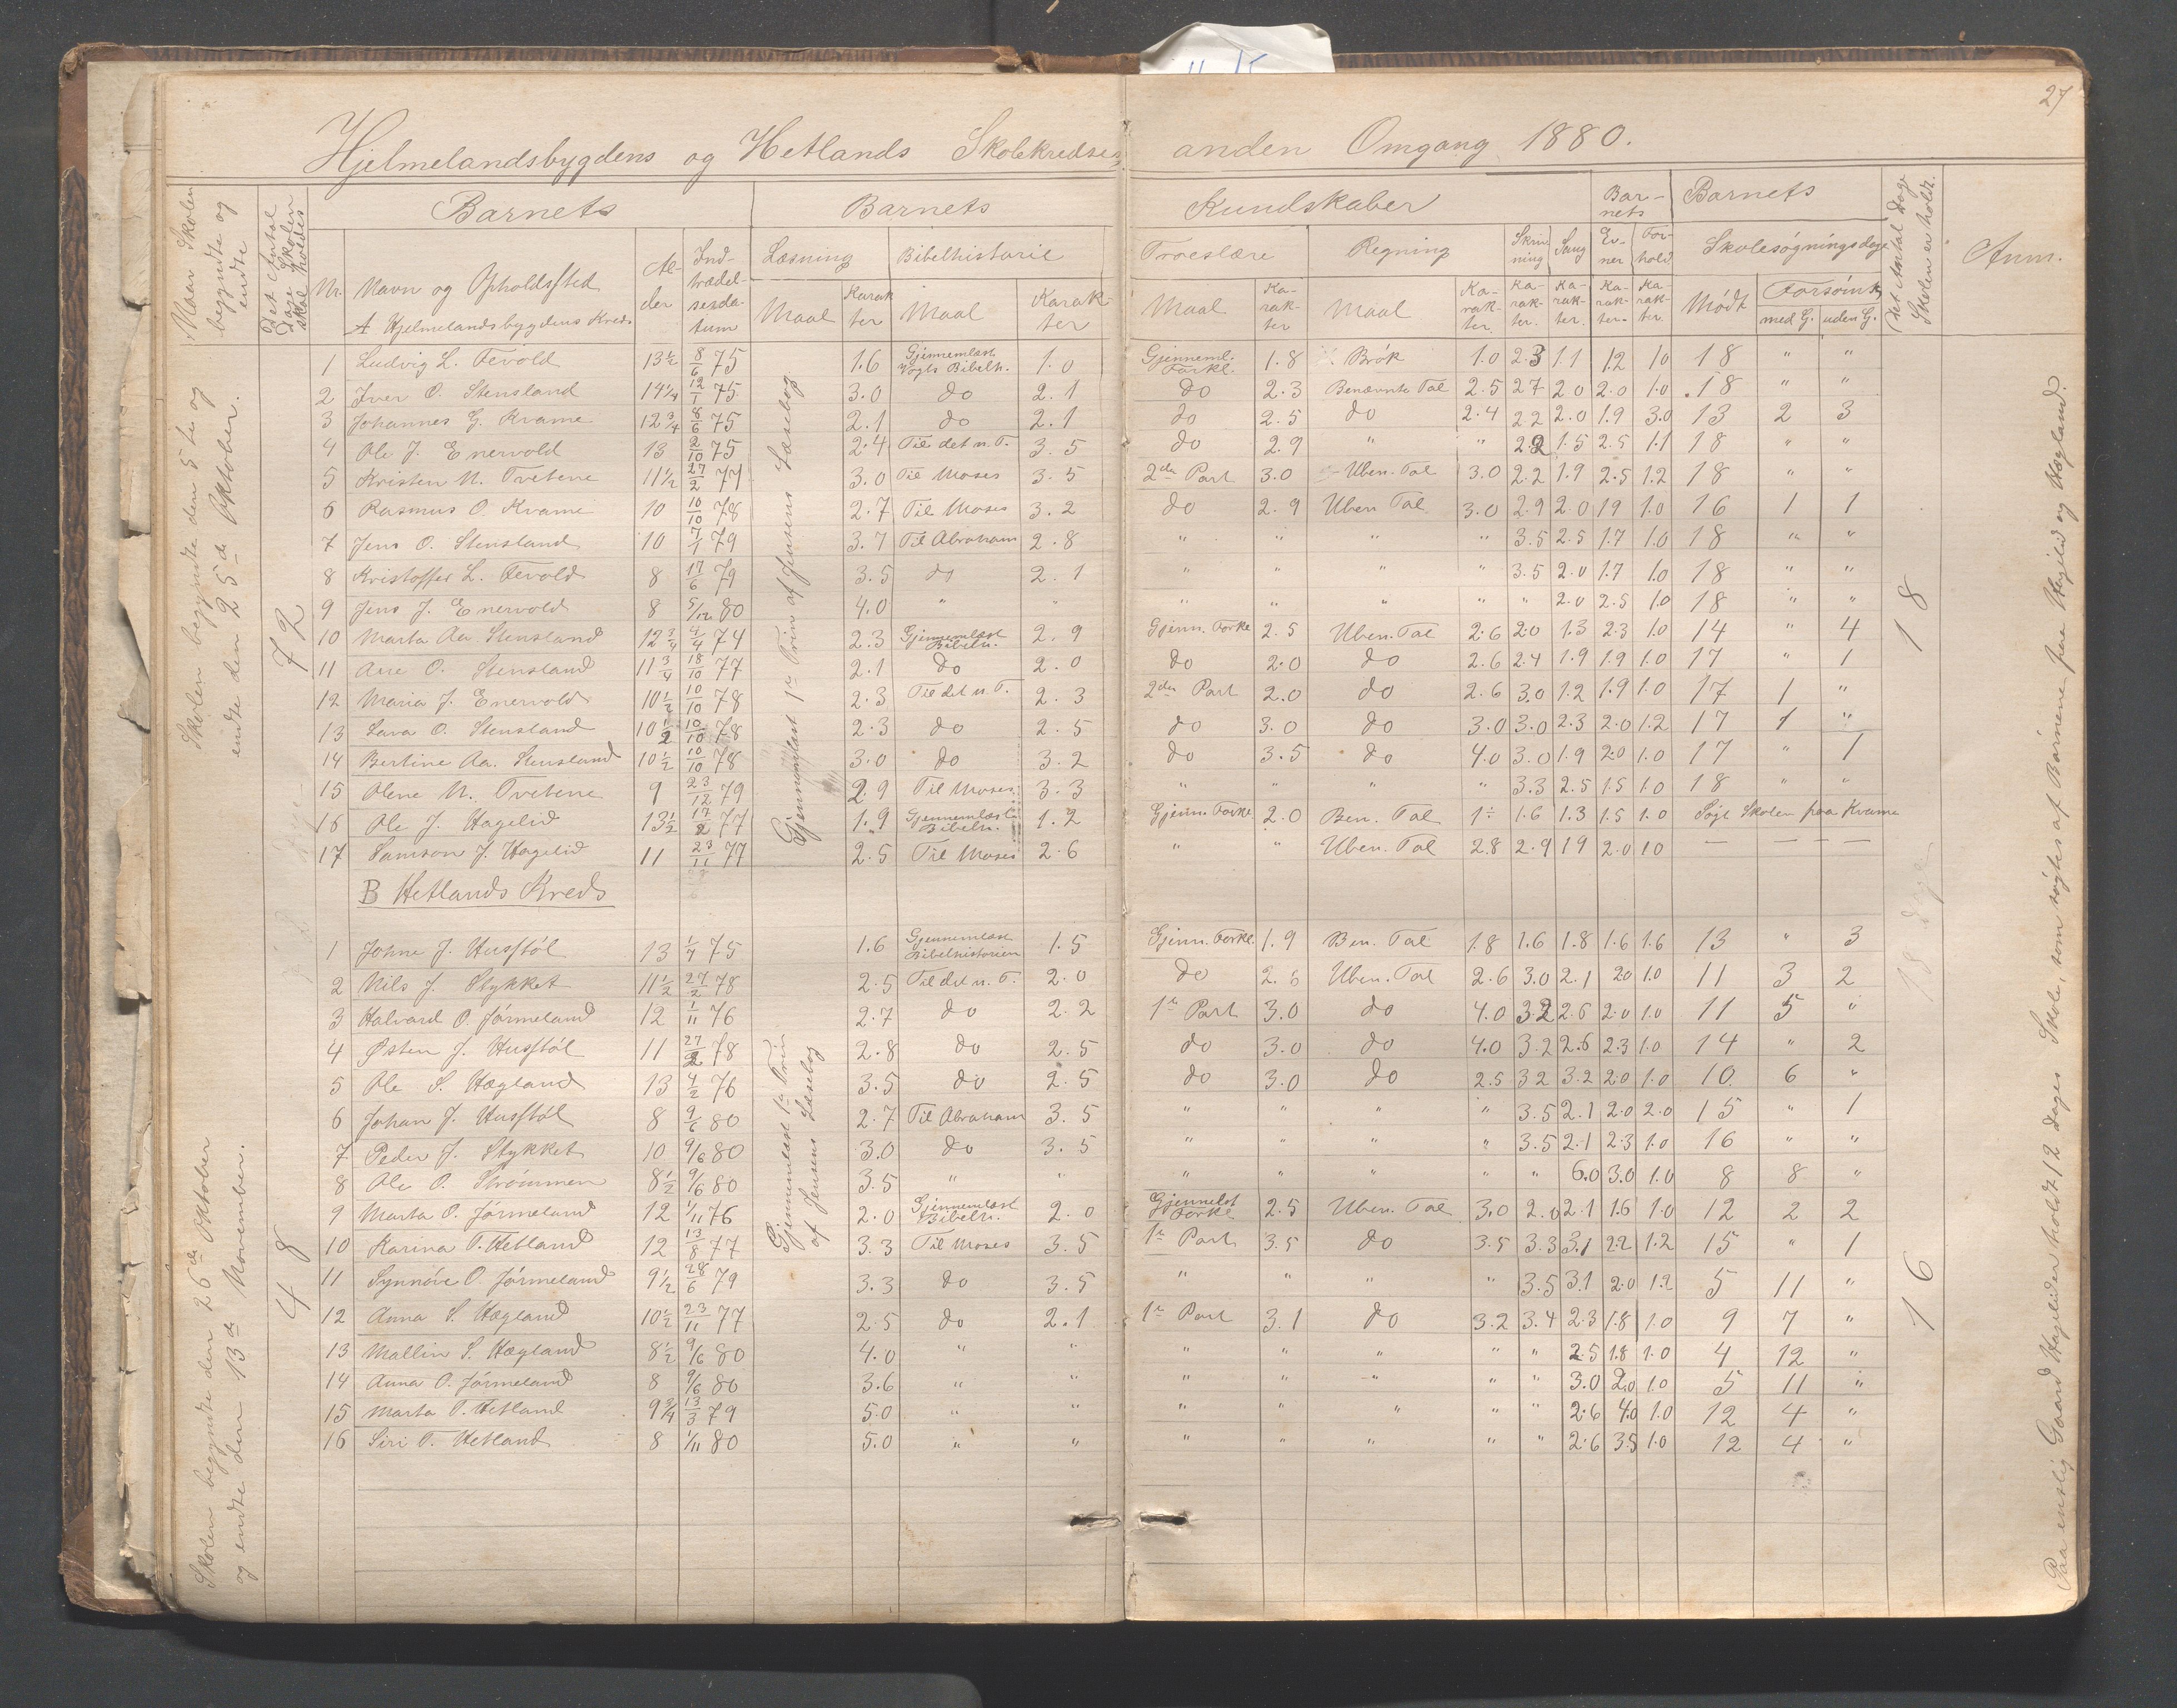 27
Hjelmelandsbygdens og Hetlands Skolekredses anden Omgang 1880.
Naar Skolen begyndte og endte
Det Antal Dage Skolen skal holdes
Barnets
Barnets Kundskaber
Barnets
Barnets
Det Antal Dage Skolen er holdt.
Anm.
Nr. Navn og Opholdssted Alder Indtrædelsesdatum Læsning Bibelhistorie Troeslære Regning Skrivning Sang Evner Forhold Skolesøgningsdage
A Hjelmelandsbygdens Kreds
Maal Karakter Maal Karakter Maal Karakter Maal Karakter. Karakter. Karakter. Karakter. Karakter. Mödt Forsömt med G. uden G.
Skolen begyndte den 5te og endte den 25de Oktober.
72
Gjennemlæst 1ste Trin af Jensens Læsebog
18
1 Ludvig L. Tevold 13 1/2 8/6 75 1.6 Gjennemlæst Vogts Bibelh. 1.0 Gjenneml. Forkl. 1.8 Brök 1.0 2.3 1.1 1.2 1.0 18 " "
2 Iver O. Stensland 14 1/4 12/1 75 3.0 do 2.1 do 2.3 Benævnte Tal 2.5 2.7 2.0 2.0 1.0 18 " "
3 Johannes G. Kvame 12 3/4 8/6 75 2.1 do 2.1 do 2.5 do 2.4 2.2 2.0 1.9 3.0 13 2 3
4 Ole J. Enervold 13 2/10 75 2.4 Til det n. T. 3.5 do 2.9 " " 2.2 1.5 2.5 1.1 18 " "
5 Kristen N. Tvetene 11 1/2 27/2 77 3.0 Til Moses 3.5 2den Part 3.0 Uben. Tal 3.0 2.2 1.9 2.5 1.2 18 " "
6 Rasmus O. Kvame 10 10/10 78 2.7 Til Moses 3.2 do 2.9 Uben. Tal 3.0 2.9 2.0 1.9 1.0 16 1 1
7 Jens O. Stensland 10 7/1 79 3.7 Til Abraham 2.8 " " " " 3.5 2.5 1.7 1.0 18 " "
8 Kristoffer L. Tevold 8 17/6 79 3.5 do 2.1 " " " " 3.5 2.0 1.7 1.0 18 " "
9 Jens J. Enervold 8 5/12 80 4.0 " " " " " " " 2.0 2.5 1.0 18 " "
10 Marta Aa. Stensland 12 3/4 4/4 74 2.3 Gjennemlæst Bibelh. 2.9 Gjenn. Forkl 2.5 Uben. Tal 2.6 2.0 1.3 2.3 1.0 14 " 4
11 Ane O. Stensland 11 3/4 18/10 77 2.1 do 2.0 do 2.0 do 2.6 2.4 1.9 1.9 1.0 17 " 1
12 Maria J. Enervold 10 1/2 10/10 78 2.3 Til det n. T. 2.3 2den Part 2.0 do 2.6 3.0 1.2 1.9 1.0 17 1 "
13 Lava O. Stensland 10 1/2 10/10 78 2.3 do 2.5 do 3.0 do 3.0 3.0 2.3 2.0 1.2 17 1 "
14 Bertine Aa. Stensland 10 1/2 10/10 78 3.0 do 3.2 do 3.5 do 4.0 3.0 1.9 2.0 1.0 17 " 1
15 Olene N. Tvetene 9 23/12 79 2.9 Til Moses 3.3 " " " " 3.3 2.5 1.5 1.0 18 " "
16 Ole J. Hagelid 13 1/2 17/2 77 1.9 Gjennemlæst Bibelh. 1.2 Gjenn. Forkl 2.0 Ben. Tal 1÷ 1.6 1.3 1.5 1.0 Sögt Skolen paa Kvame
17 Samson J. Hagelid 11 23/11 77 2.5 Til Moses 2.6 " " Uben. Tal 2.8 2.9 1.9 2.0 1.0 — — — —
B Hetlands Kreds
18 dage
Skolen begyndte den 26de Oktober og endte den 13de November.
48
Gjennemlæst 1ste Trin af Jensens Læsebog
16
1 Johne J. Husstöl 13 1/7 75 1.6 Gjennemlæst Bibelhistorien 1.5 Gjenn. Forkl. 1.9 Ben. Tal 1.8 1.6 1.8 1.6 1.6 13 " 3
2 Nils J. Stykket 11 1/2 27/2 78 2.5 Til det n. T. 2.0 do 2.6 Uben. Tal 2.6 3.0 2.1 2.0 1.0 11 3 2
3 Halvard O. Jörmeland 12 1/11 76 2.7 do 2.2 1ste Part 3.0 do 4.0 3.2 2.6 2.0 1.0 11 5 "
4 Østen J. Husstöl 11 27/2 78 2.8 do 2.5 do 3.0 do 4.0 3.2 2.6 2.3 1.0 14 " 2
5 Ole S. Hægland 13 4/2 76 3.5 do 2.5 do 3.0 do 2.5 3.2 3.2 2.0 1.0 10 6 "
6 Johan J. Husstöl 8 9/6 80 2.7 Til Abraham 3.5 " " " " 3.5 2.1 2.0 2.0 15 " 1
7 Peder J. Stykket 10 9/6 80 3.0 do 3.5 " " " " 3.5 2.1 2.3 1.0 16 " "
8 Ole O. Strömmen 8 1/2 9/6 80 3.5 " " " " " " " 6.0 3.0 1.0 8 8 "
9 Marta O. Jörmeland 12 1/11 76 2.0 Gjennemlæst Bibelh. 2.0 Gjennelst Forkl 2.5 Uben. Tal 3.0 2.0 2.1 1.6 1.0 12 2 2
10 Karina T. Hetland 12 13/8 77 3.3 Til Moses 3.5 1ste Part 3.5 do 3.5 3.3 3.1 2.2 1.2 15 " 1
11 Synnöve O. Jörmeland 9 1/2 28/6 79 3.3 do 3.5 " " " " 3.5 3.1 2.0 1.2 5 11 "
12 Anna S. Hægland 10 1/2 23/11 77 2.5 do 2.1 1ste Part 3.1 do 3.2 3.4 2.3 1.8 1.0 9 7 "
13 Mallin S. Hægland 8 1/2 9/6 80 4.0 " " " " " " " 2.5 1.8 1.0 4 12 "
14 Anna O. Jörmeland 8 9/6 80 3.6 " " " " " " " 3.0 2.0 1.0 5 11 "
15 Marta T. Hetland 9 3/4 13/3 79 5.0 " " " " " " " 2.6 4.0 1.0 12 4 "
16 Siri T. Hetland 8 1/11 80 5.0 " " " " " " " 2.6 3.5 1.0 12 4 "
Paa enslig Gaard Hagelid er holdt 12 Dages Skole, som sögtes af Börnene paa Hagelid og Hægland.